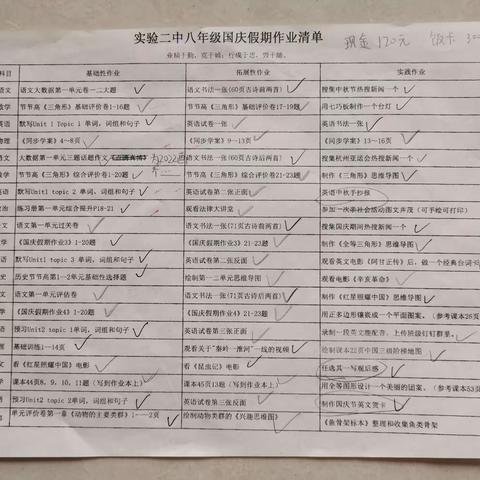 实验二中八年级国庆假期作业清单
现金 120元 饭卡 300
业精于勤,荒于嬉;行成于思,毁于随。
科目 基础性作业 拓展性作业 实践作业
语文 语文大数据第一单元卷一二大题 语文书法一张(60页古诗前两首) 搜集中秋节热搜新闻一个
数学 节节高《三角形》基础评价卷1-16题 节节高《三角形》基础评价卷17-19题 用七巧板制作一个台灯
英语 默写Unit 1 Topic 1 单词,词组和句子 英语试卷一张 英语书法一张
物理 《同步学案》4~8页 《同步学案》9~13页 《同步学案》13~16页
语文 大数据第一单元三题话题作文 为2022画 语文书法一张(60页古诗后两首) 搜集杭州亚运会热搜新闻一个
数学 节节高《三角形》综合评价卷1-20题 节节高《三角形》综合评价卷21-23题 制作《三角形》思维导图
英语 默写Unit1 topic 2 单词、词组和句子 英语试卷第二张正面 英语中秋手抄报
政治 练习册第一单元综合提升P18-21 观看法律大讲堂 参加一次亲社会活动图文并茂(可手绘可打印)
语文 语文第一单元过关卷 语文书法一张(71页古诗前两首) 搜集国庆期间热搜新闻一个
数学 《国庆假期作业3》1-20题 《国庆假期作业3》21-23题 制作《全等三角形》思维导图
英语 默写Unit1 topic 3 单词、词组和句子 英语试卷第二张反面 观看英文电影《阿甘正传》后,做一个经典台词卡
历史 历史节节高第1—2单元基础性选择题 绘制第一二单元思维导图 观看电影《辛亥革命》
语文 语文第一单元评估卷 语文书法一张(71页古诗后两首) 制作《红星照耀中国》思维导图
数学 《国庆假期作业4》1-20题 《国庆假期作业4》21-23题 用正多边形镶嵌成一个平面图案。(参考课本26页
英语 预习Unit2 topic 1单词,词组和句子 英语试卷第三张正面 录制一段英文趣配音、上传班级钉钉群里。
地理 基础训练1—14页 观看关于“秦岭一淮河”一线的视频 绘制课本22页中国三级阶梯地图
语文 看《红星照耀中国》电影 看《昆虫记》电影 任选其一写观后感
数学 课本44页8、9、10、11题(写到作业本上) 课本45页13题(写到作业本上) 用全等图形设计一个美丽的图案。(参考课本53页
英语 预习Unit2 topic 2单词,词组和句子 英语试卷第三张反面 制作国庆节英文贺卡
单元评价卷第一章《动物的主要类群》1——2页 绘制动物类群的《兴趣思维图》 《鱼骨架标本》整理和收集鱼类骨架